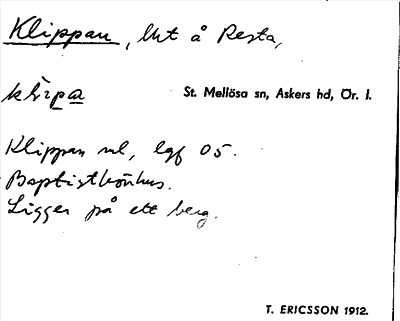 Klippan, lht å Resta,
klìpa
St. Mellösa sn, Askers hd, Ör. l.
Klippan ml, lgf 05.
Baptistbönhus.
Ligger på ett berg.
T. ERICSSON 1912.